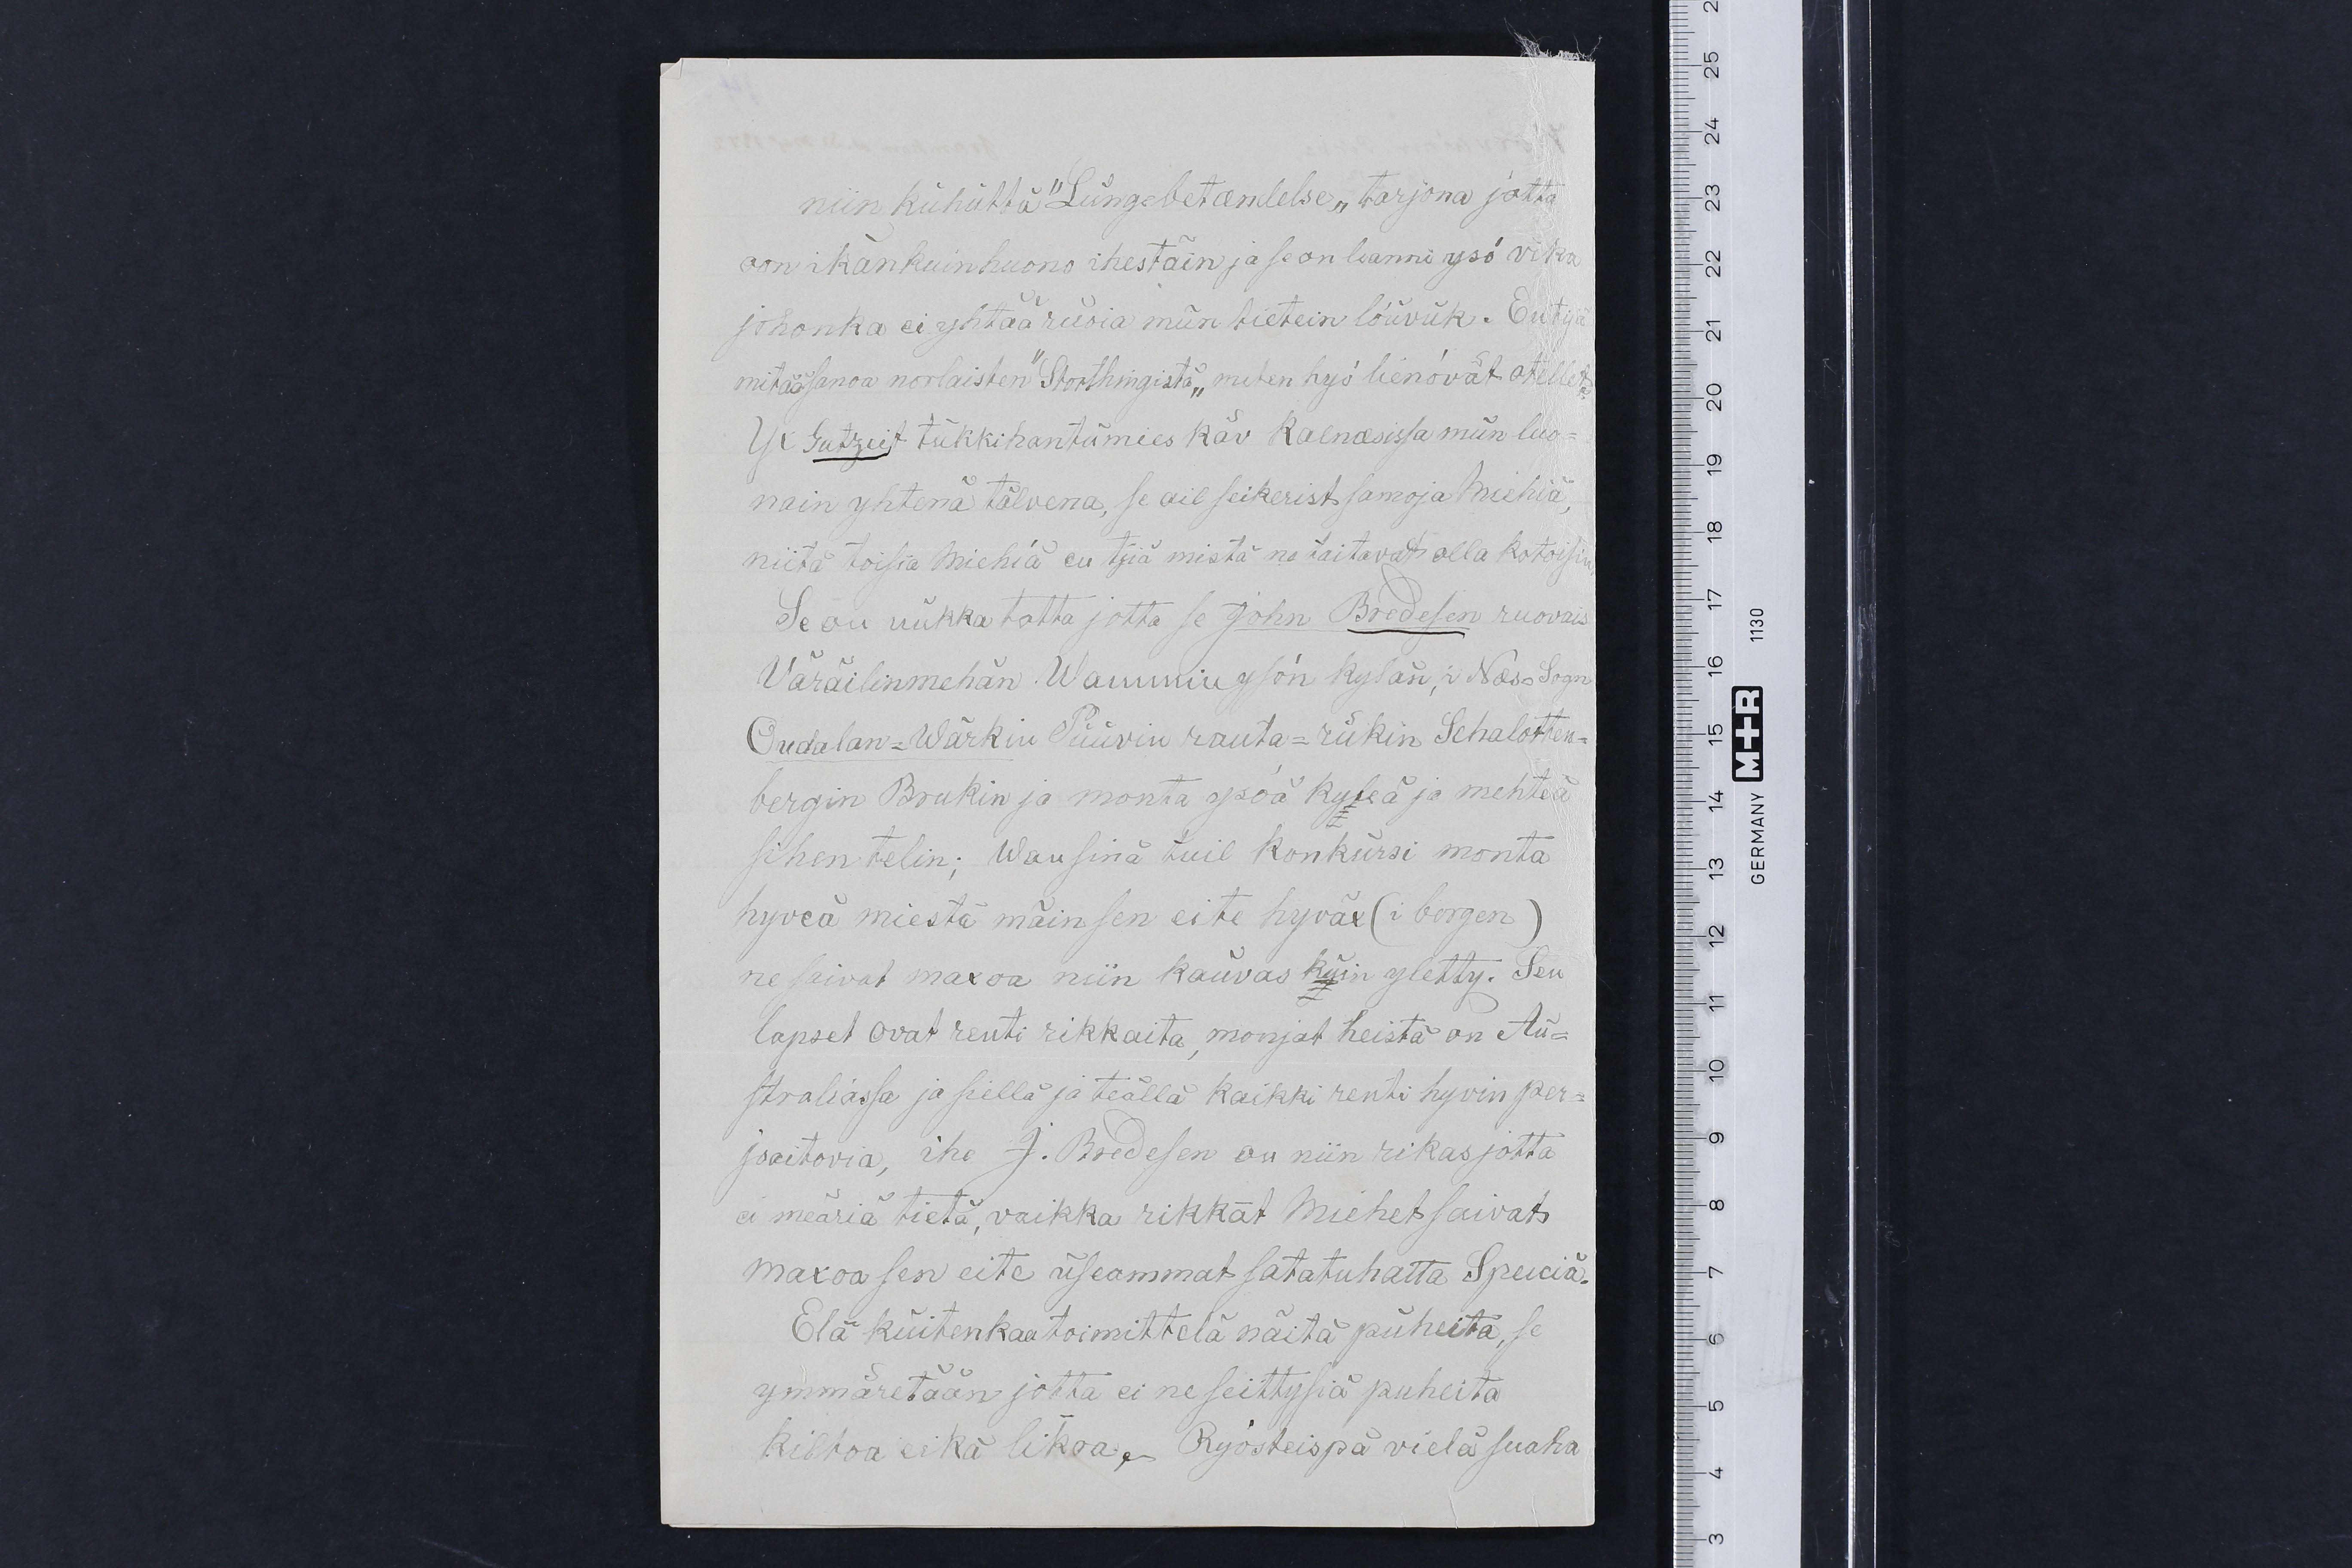 niin kuhutta "Lung-betændelse„ tarjona jotta
oon ikänkuin huono ihestäin ja se on leanni ysö vika
johonka ei yhtää rüoia mün tietein löüvük. En tijä
mitää sanoa norlaisten "Storthingistä„ miten hyö lienövät otellet.
Yx Gutzeit tükkihantümies käv Kalnæsissa mün luo=
nain yhtenä tälvena, se ail seikerist samoja Miehiä,
niitä toisia Miehiä en tjiä mistä ne taitavat olla kotoisin,
Se on uükka totta jotta se John Bredesen ruovais
Väräilinmehän Wammin ysön kylän, i Næs-Sogn
Oudalan=Wärkin Püüvin rauta=rükin Schalotten=
bergin Brukin ja monta ysöä kyleä ja mehteä
sihen telin; Wan sinä tuil konkürsi monta
hyveä miestä mäin sen eite hyväx (i borgen)
ne saivat maxoa niin kaüvas küin yletty. Sen
lapset ovat renti rikkaita, monjat heistä on Aü=
straliassa ja siellä ja teällä kaikki renti hyvin per=
jsaitovia, ihe J. Bredesen on niin rikas jotta
ei meäriä tietä, vaikka rikkät Miehet saivat
maxoa sen eite üseammat satatuhatta Speciä.
Elä küitenkaa toimittelä näitä püheita, se
ymmäretään jotta ei ne seittysiä puheita
kiltoa eikä likoa, Ryösteispä vielä suaha